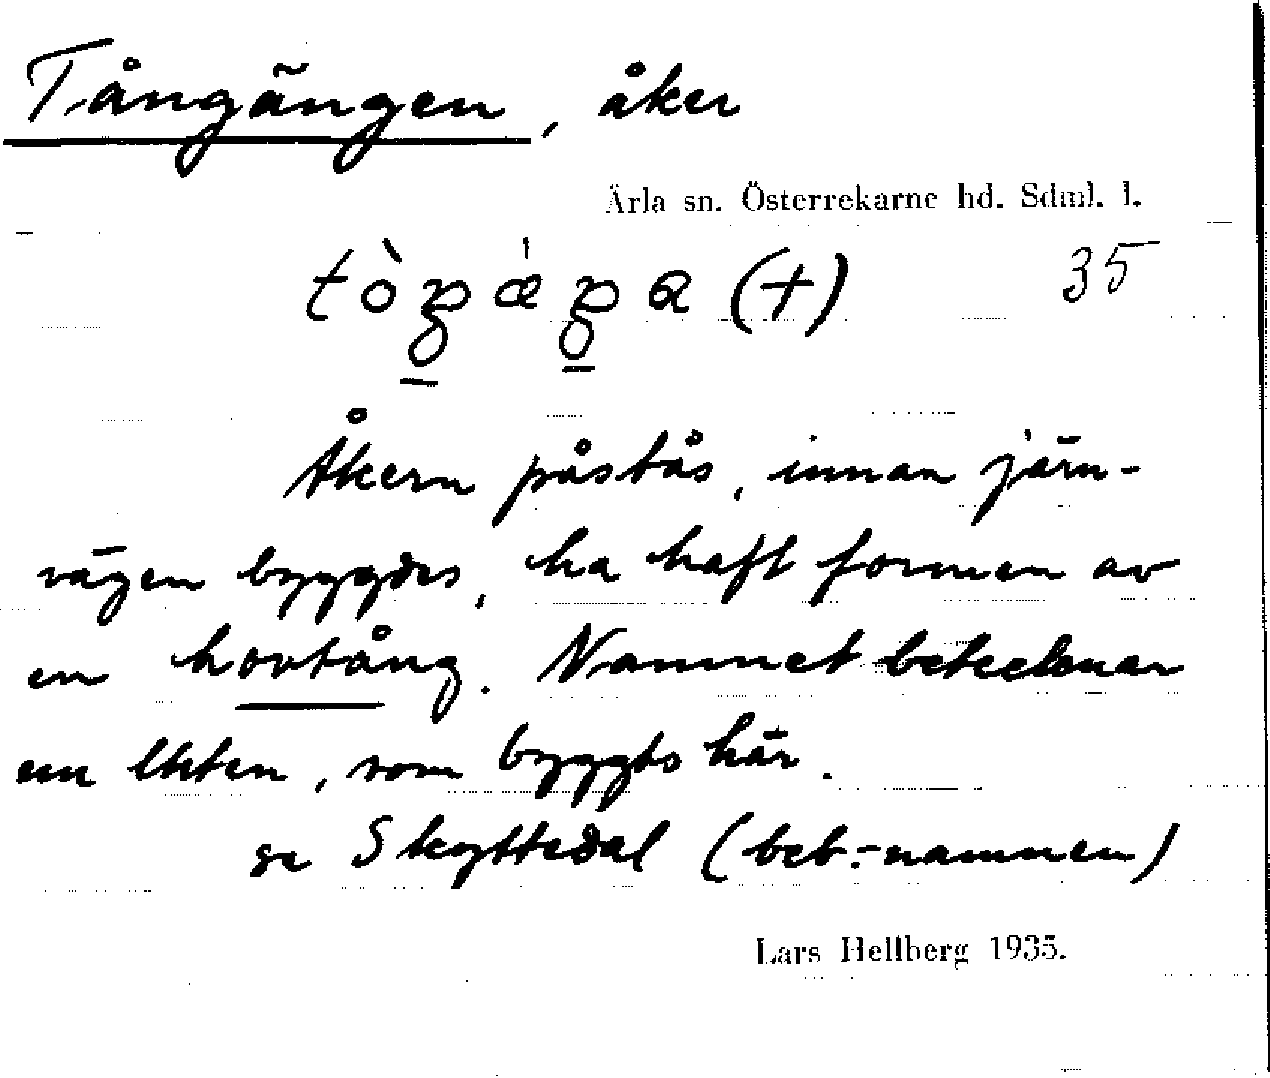 Tångängen, åker
Ärla sn. Österrekarne hd. Sdml. l.
35
Åkern påstås, innan järn-
vägen byggdes, ha haft formen av
en hovtång. Namnet betecknar
nu lkten, som byggts här.
se Skyttedal (beb.-namnen)
Lars Hellberg 1935.